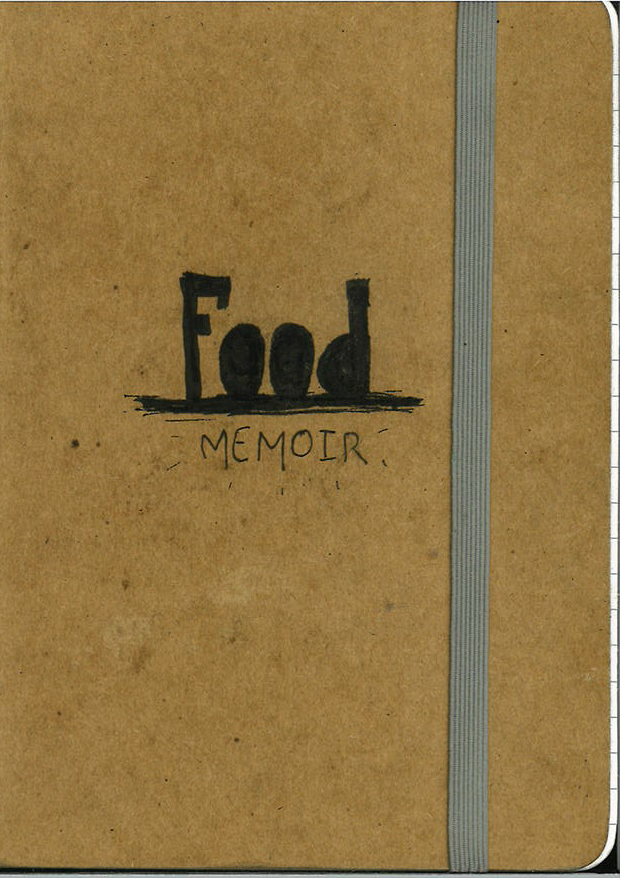 Food
MEMOIR